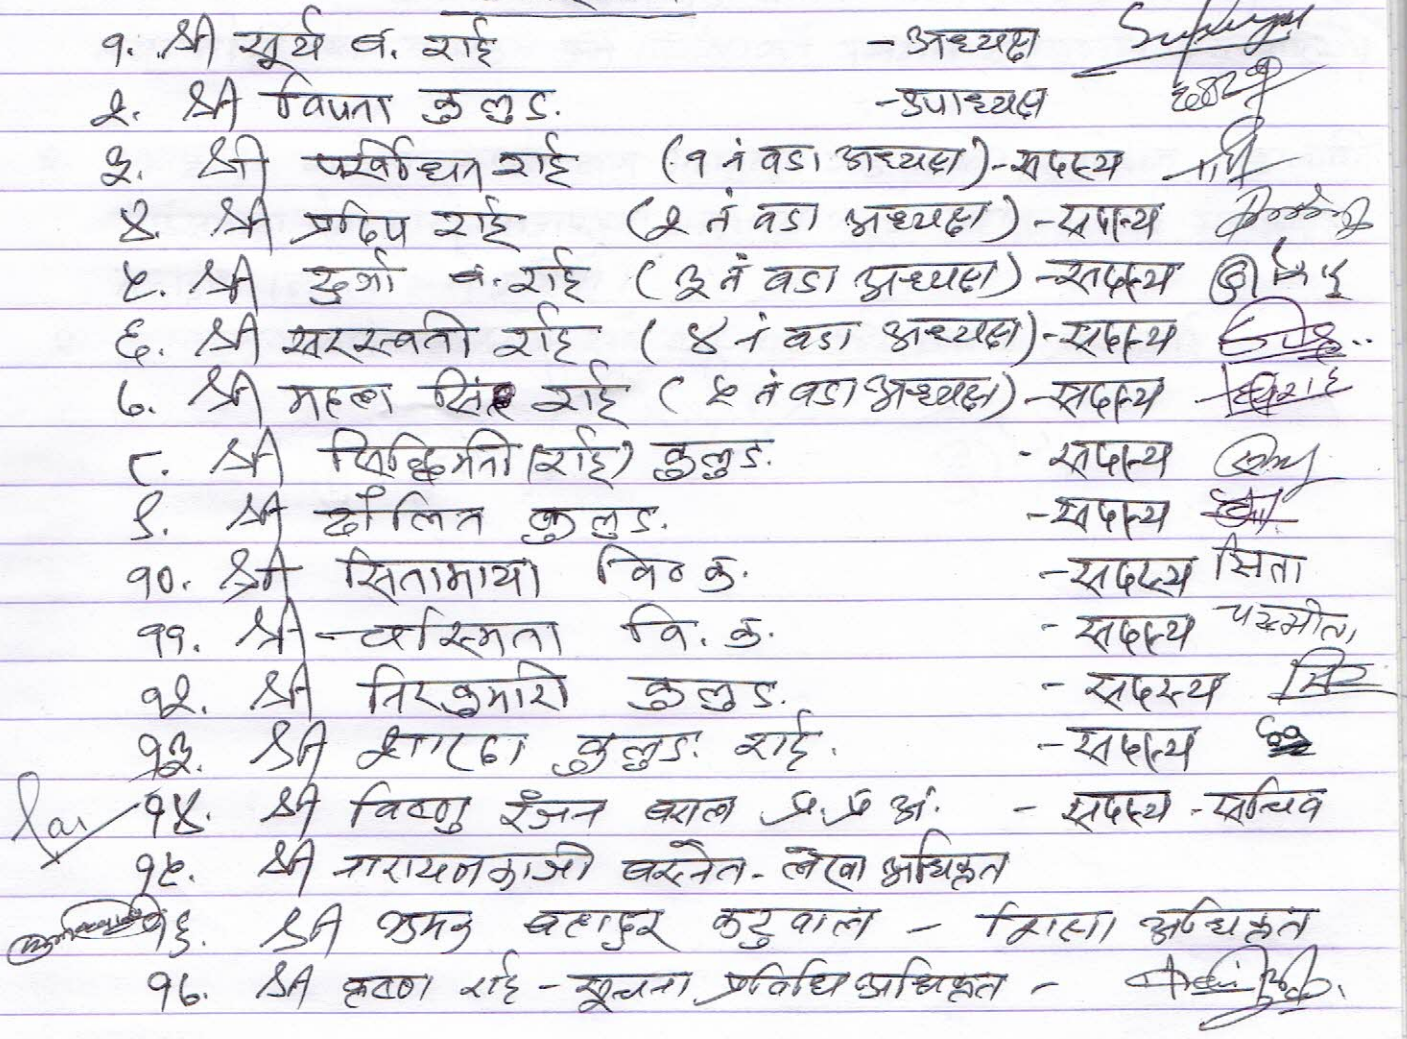 १. श्री सूर्य ब. राई -अध्यक्ष
२. श्री विपना कुलुङ. -उपाध्यक्ष
३. श्री राई (१ नं वडा अध्यक्ष)-सदस्य
४. श्री प्रदिप राई (२ नं वडा अध्यक्ष)-सदस्य
५. श्री दुर्गा ब. राई (३ नं वडा अध्यक्ष)-सदस्य
६. श्री सरस्वती राई (४ नं वडा अध्यक्ष)-सदस्य
७. श्री सिंह राई (५ नं वडा अध्यक्ष)-सदस्य
८. श्री सिद्धिमती (राई) कुलुङ. -सदस्य
९. श्री दौलित कुलुङ. -सदस्य
१०. श्री सितामाया वि० क. -सदस्य सिता
११. श्री वि. क. -सदस्य
१२. श्री निरकुमारी कुलुङ. -सदस्य
१३. श्री शारदा कुलुङ. राई. -सदस्य
१४. श्री विष्णु रंजन बराल प्र.प्र अ. - सदस्य -सचिव
१५. श्री नारायणकाजी बस्नेत-लेखा अधिकृत
१६. श्री बहादुर कटुवाल - शिक्षा अधिकृत
१७. श्री कृष्ण राई -सूचना प्रविधि अधिकृत -